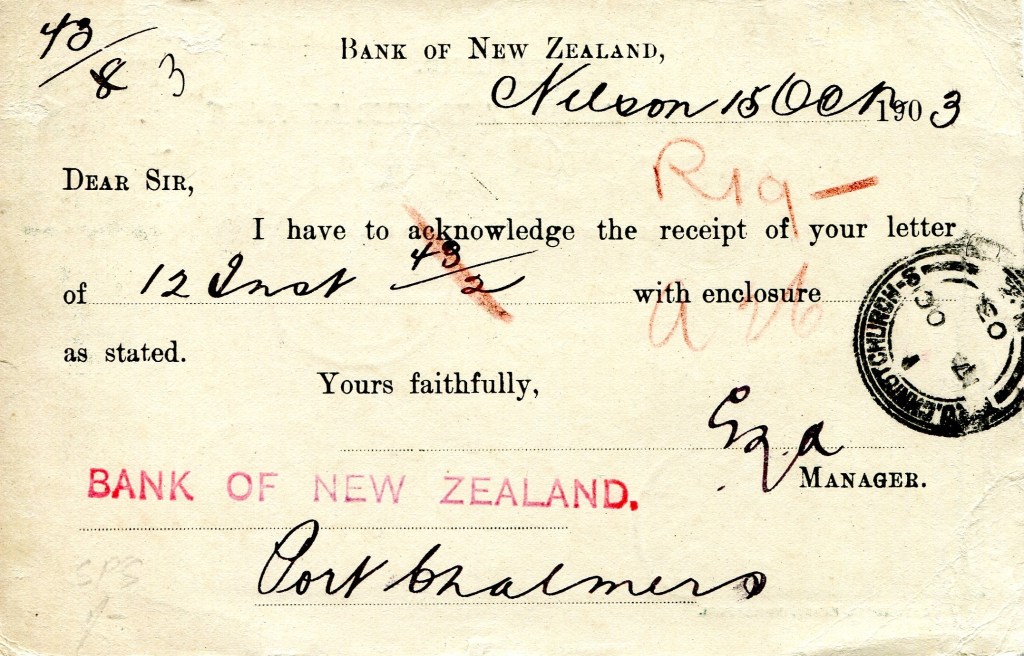 43/8 3
BANK OF NEW ZEALAND,
Nelson 15 Oct 1903
DEAR SIR,
R19-
I have to acknowledge the receipt of your letter
of 12 Inst 43/2 with enclosure
as stated.
Yours faithfully,
MANAGER.
BANK OF NEW ZEALAND.
Port Chalmers
CHRISTCHURCH-S